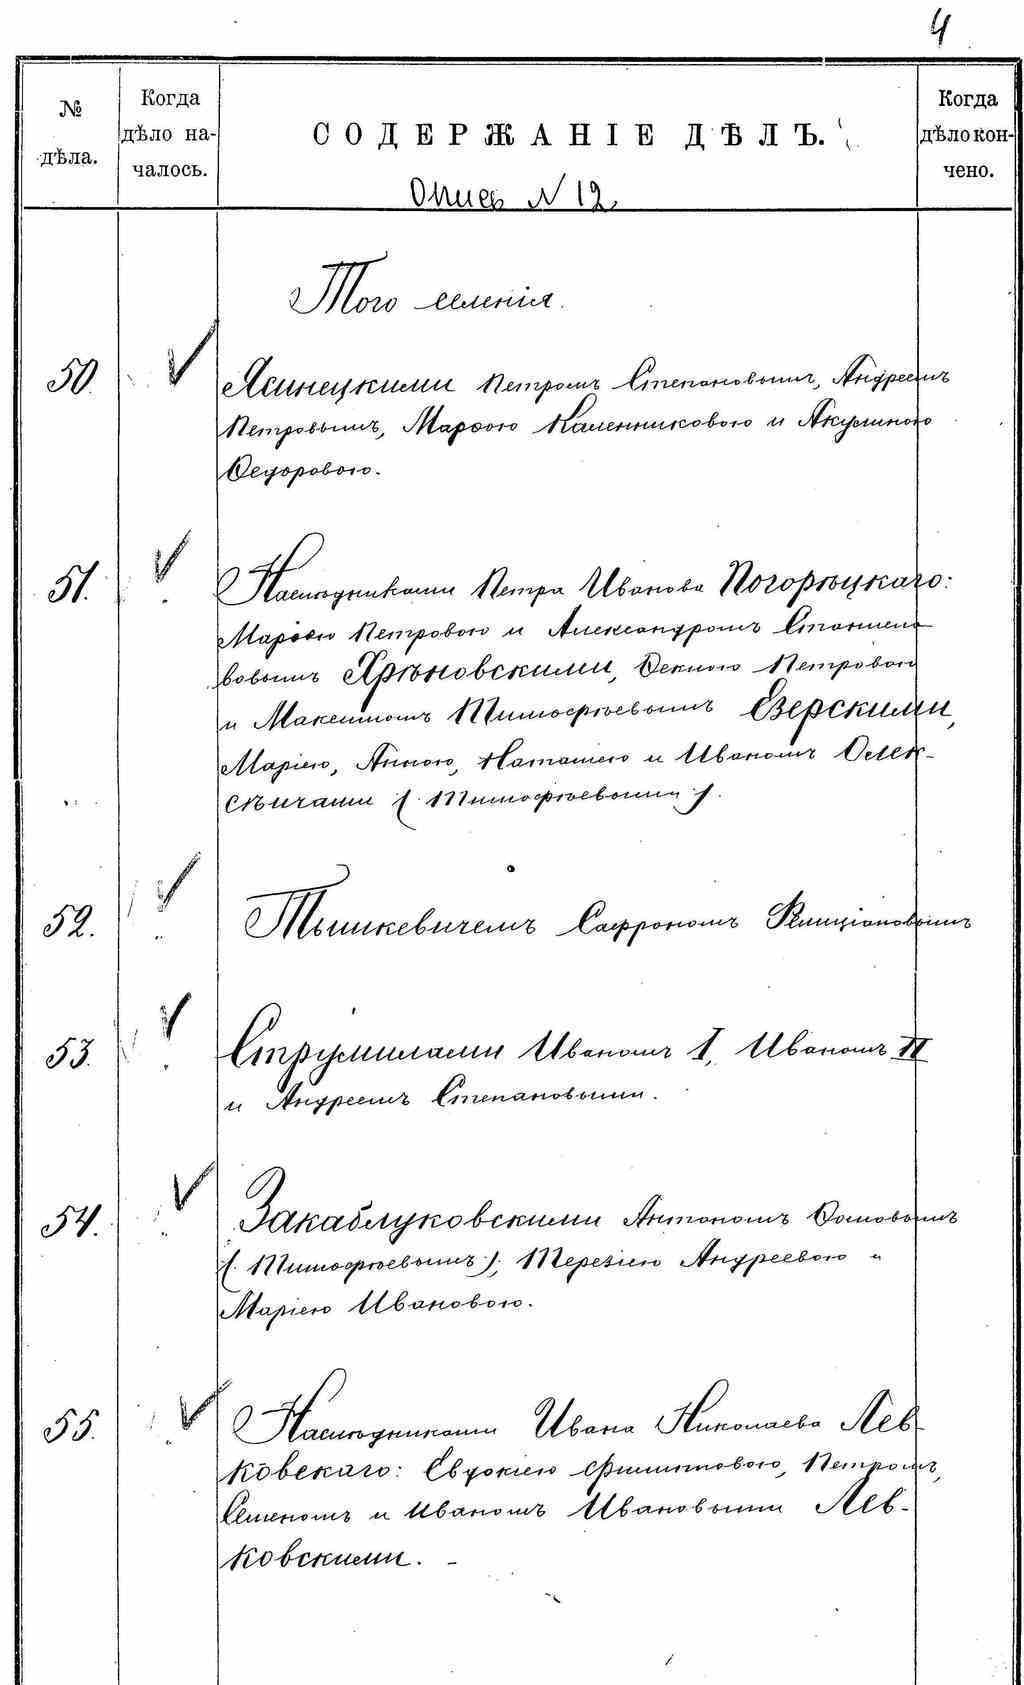 4
№ дѣла.
Когда дѣло началось.
СОДЕРЖАНІЕ ДѢЛЪ.
Когда дѣло кончено.
Опись N 12.
Того селенія.
50. Ясинецкими Петромъ Степановымъ, Андреемъ
Петровымъ, Марѳою Каленниковою и Акулиною
Ѳедоровою.
51. Наслѣдниками Петра Иванова Погорѣцкаго:
Марѳою Петровою и Александромъ Станисла
вовымъ Хрѣновскими, Ѳеклою Петровою
и Максимомъ Тимофѣевымъ Езерскими,
Маріею, Анною, Наталіею и Иваномъ Олек-
сѣичами (Тимофѣевыми).
52. Тышкевичемъ Сафрономъ Фелиціановымъ
53. Струмилами Иваномъ I, Иваномъ II
и Андреемъ Степановыми.
54. Закаблуковскими Антономъ Ѳомовымъ
(Тимофѣевымъ), Терезіею Андреевою и
Маріею Ивановою.
55. Наслѣдниками Ивана Николаева Лев-
ковскаго: Евдокіею Филиповою, Петромъ,
Семеномъ и Иваномъ Ивановыми Лев-
ковскими.